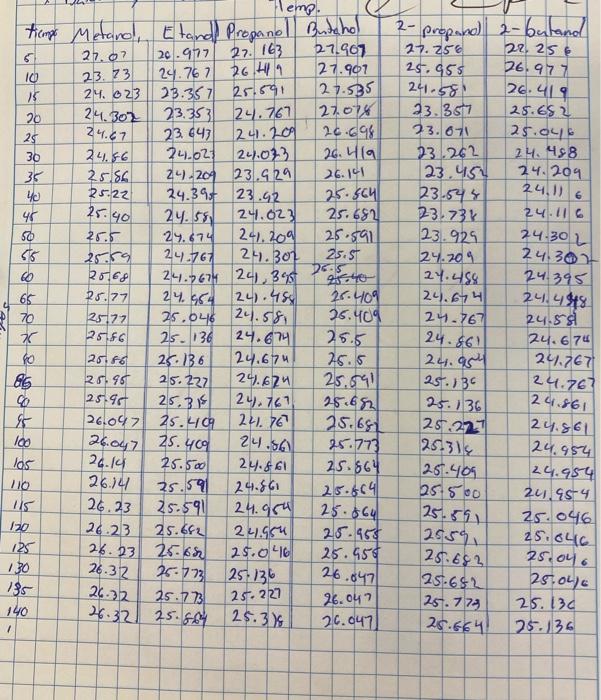 Temp.
tiempo Metanol, Etanol Propanol Butahol 2-propanol 2-butanol
5 27.07 26.977 27.163 27.907 27.256 27.256
10 23.73 24.767 26.419 27.907 25.955 26.977
15 24.023 23.357 25.591 27.535 24.581 26.419
20 24.302 23.353 24.767 27.078 23.357 25.682
25 24.67 23.643 24.209 26.698 23.071 25.046
30 24.86 24.023 24.033 26.419 23.262 24.488
35 25.86 24.209 23.929 26.141 23.452 24.209
40 25.22 24.395 23.92 25.864 23.548 24.116
45 25.40 24.581 24.023 25.682 23.738 24.116
50 25.5 24.674 24.209 25.591 23.929 24.302
55 25.59 24.767 24.302 25.5 24.209 24.302
60 25.68 24.7674 24,395 25.5 24.488 24.395
65 25.77 24.954 24.488 25.409 24.674 24.488
70 25.77 25.046 24.581 25.409 24.767 24.581
75 25.86 25.136 24.674 25.5 24.861 24.674
80 25.86 25.136 24.674 25.5 24.954 24.767
85 25.95 25.227 24.674 25.591 25.136 24.767
90 25.95 25.318 24.767 25.682 25.136 24.861
95 26.047 25.409 24.767 25.682 25.227 24.861
100 26.047 25.409 24.861 25.773 25.318 24.954
105 26.14 25.500 24.861 25.864 25.409 24.954
110 26.14 25.591 24.861 25.864 25.500 24.954
115 26.23 25.591 24.954 25.864 25.591 25.046
120 26.23 25.682 24.954 25.955 25.591 25.046
125 26.23 25.682 25.046 25.955 25.682 25.046
130 26.32 25.773 25.136 26.047 25.682 25.046
135 26.32 25.773 25.227 26.047 25.773 25.136
140 26.32 25.864 25.318 26.047 25.664 25.136